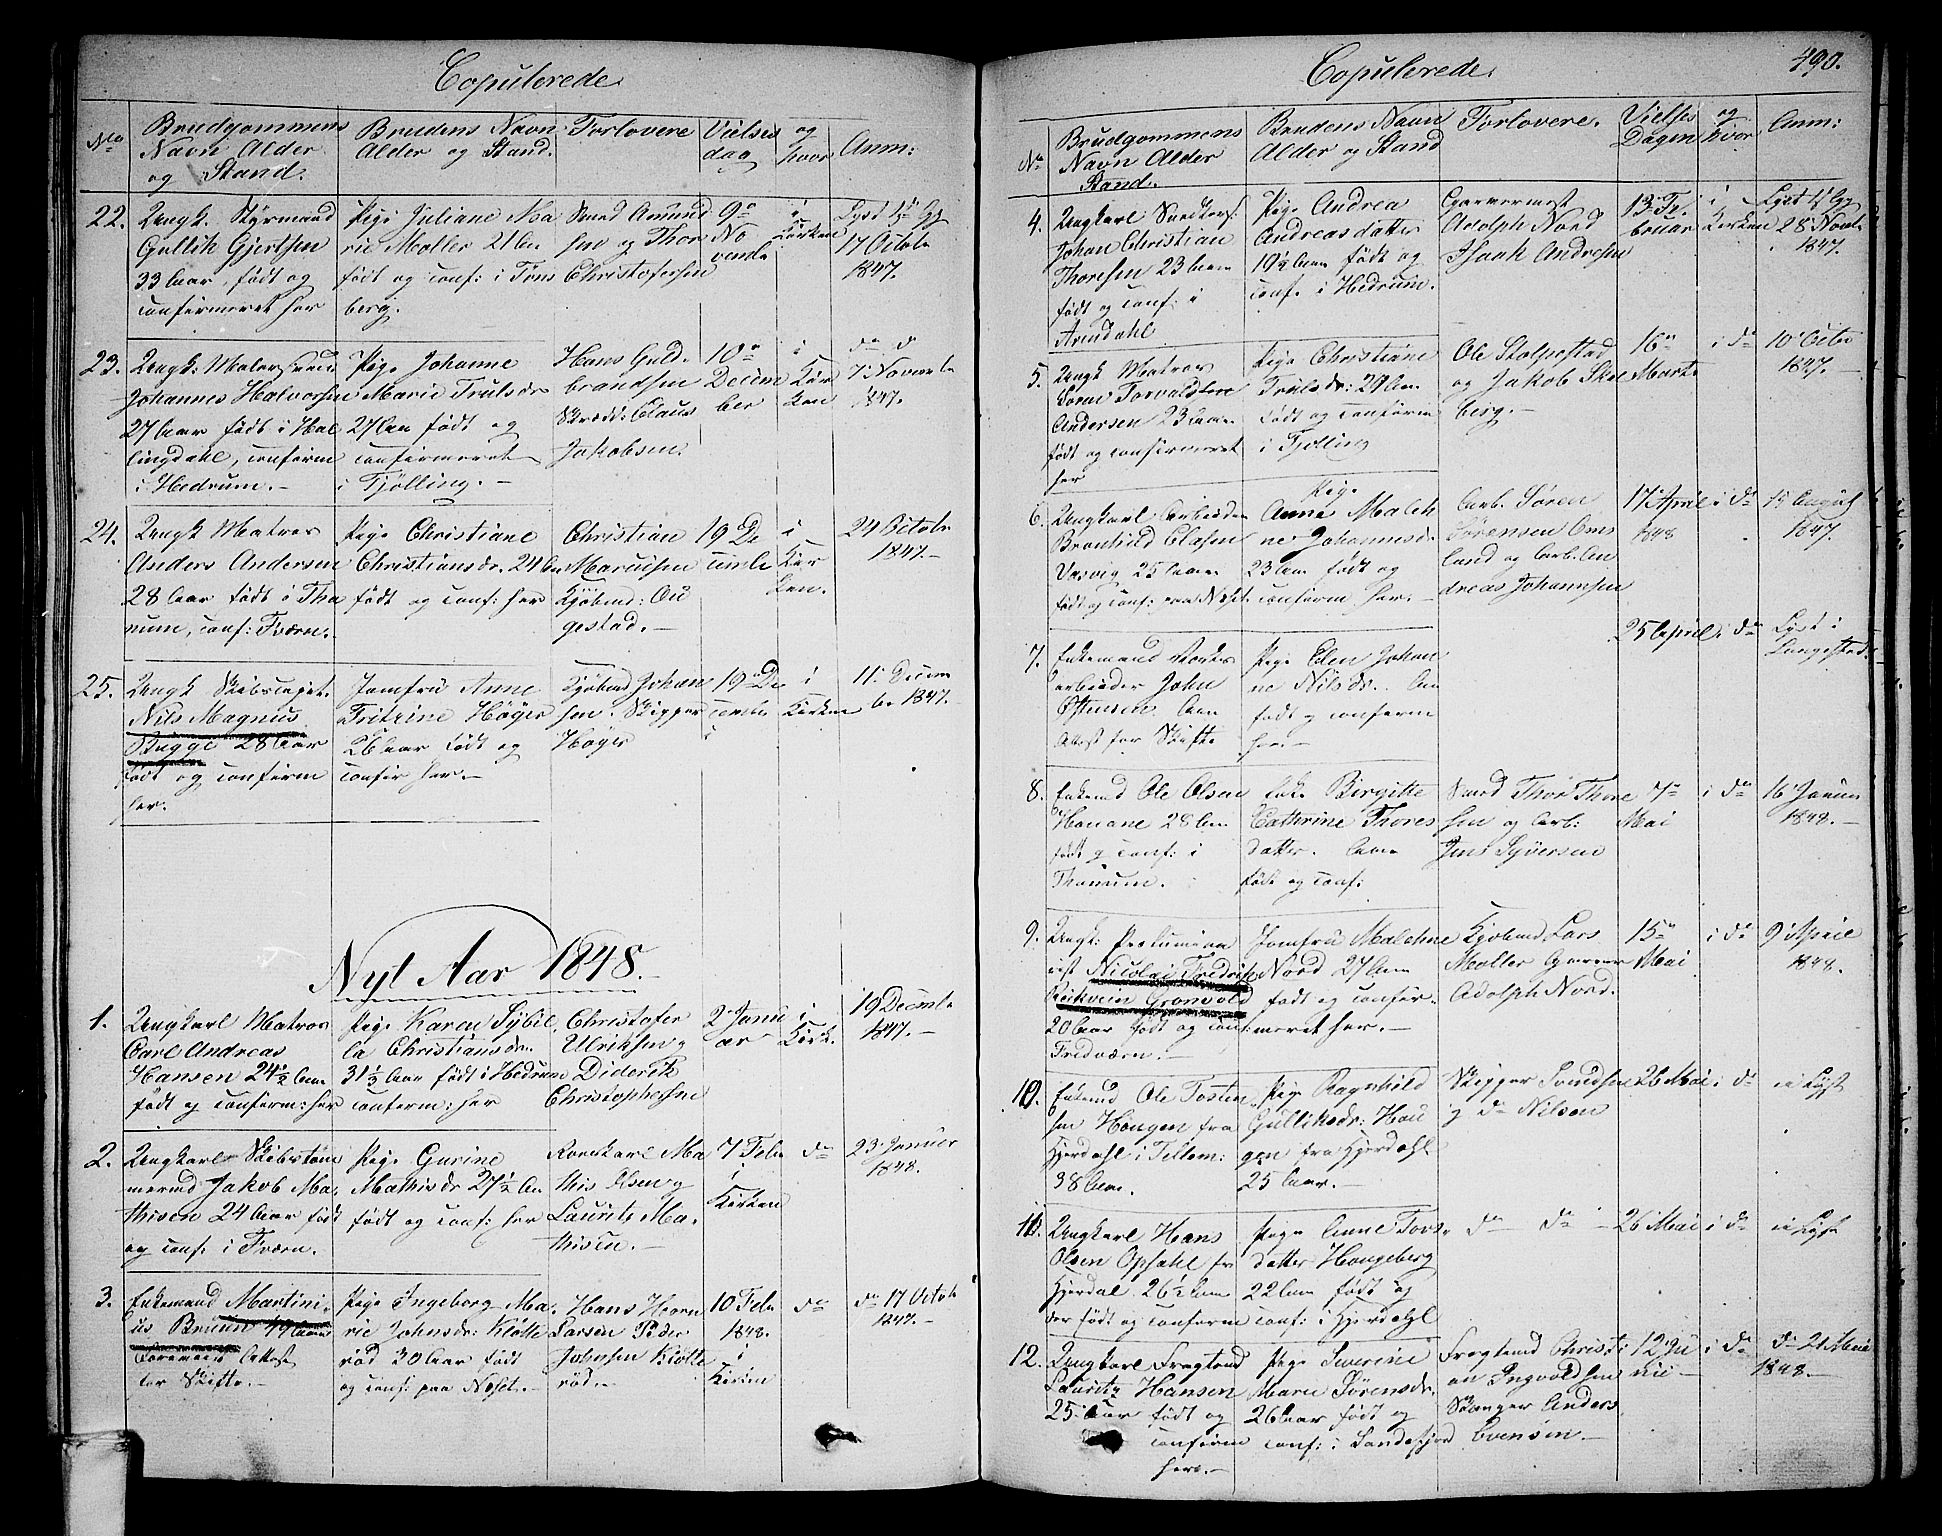 Copulerede.
No
Brudgommens
Navn Alder
og Stand.
Brudens Navn
Alder og Stand.
Forlovere
Vielses
dag
og
hvor
Anm:
22. Ungk. Styrmand
Gullik Gjertsen
33 Aar, født og
confirmeret her
Pige Juliane Ma
rie Møller 21 Aar
født og conf: i Tøns
berg.
Svend Amund
sen og Thor
Christofersen
9de
No
vembr
i
Kirken
Lyst 1ste Gg
17 Octobr
1847.
23. Ungk: Maler
Johannes Halvorsen
27 Aar født i Hal
lingdahl, confirm
i Hedrum.-
Pige Johanne
Marie Trulsdr
27 Aar født og
confirmeret
i Tjølling.-
Hans Guld-
brandsen
Skrædd: Claus
Jakobsen.
10de
Decem
ber
i
Kir
ken
do do
7 Novembr
1847.
24. Ungk Matros
Anders Andersen
28 Aar født i Tha
num, conf: Fværn.
Pige Christiane
Christiansdr. 24 Aar
født og conf: her
Christian
Marcusen
Kjøbmd: Au
gestad.-
19 De
cembr
i
Kir
ken.
24 Octobr
1847.-
25. Ungk Skibscapt.
Nils Magnus
Bugge 28 Aar
født og confirm
her.
Jomfru Anne
Fritrine Høyer
26 Aar født og
confir her.-
Kjøbmd Johan
sen. Skipper
Høyer
19 De
cembr
i
Kirken
11 Decem
br 1847.
Nyt Aar 1848.
1. Ungkarl Matros
Carl Andreas
Hansen 24½ Aar
født og confirm: her
Pige Karen Sybil
la Christiansdr.
31½ Aar født i Hedrum
confirm: her
Christofer
Ulriksen og
Diderik
Christophersen
2 Janu
ar
i
Kirk.
19 Decembr
1847.-
2. Ungkarl Skibstøm
mermd Jakob Ma-
thisen 24 Aar født
og conf: i Fværn.
Pige Gurine
Mathisdr 27½ Aar
født og conf: her
Ma
this Olsen og
Lauritz Ma-
thisen.-
7 Febr
i
Kirken
do
23 Januar
1848.
3. Enkemand Martini-
us Bruun 49 Aar
Attest
for Skifte.-
Pige Ingeborg Ma-
rie Johnsdr: Kløtte
rød 30 Aar født
og conf: paa Næset.-
Hans Horn
Larsen Peder
Johnsen Kløtte
rød.-
10 Febr
1848.
i
Kirken
do
do 17 Octobr
1847.-
Copulerede.
490.
No
Brudgommens
Navn Alder
Stand.
Brudens Navn
Alder og Stand
Forlovere.
Vielses
Dagen
og
hvor
Anm:
4. Ungkarl
Johan Christian
Thoresen 23 Aar
født og conf: i
Arendahl
Pige Andrea
Andreasdatter
19½ Aar født og
conf. i Hedrum.
Garvermest
Adolph Nord
Isaak Andresen
13 Fe-
bruar
i
Kirken
Lyst 1ste Gg
28 Novbr
1847.
5. Ungk Matros
Søren Torvaldsen
Andersen 23 Aar
født og confirmeret
her
Pige Christiane
Trulsdr: 27 Aar
født og confirm
i Tjølling
Ole Stolpestad
og Jakob Skol
berg.-
16de
Marts
i do
10 Octbr
1847.-
6. Ungkarl Arbeider
Brønhild Olafsen
Vasvig 25 Aar
født og conf: paa Næset.
Pige
Anne Malch
ne Johannesdr.
23 Aar født og
confirm her.-
Arb. Søren
Sørensen Oms
land og Arb. An
dreas Johannsen
17 April
1848
i do
15 August
1847.
7. Enkemand Værks
arbeider John
Østensen. Aar
Attest for Skifte
Pige Elen Johan
ne Nilsdr. Aar
født og confirm
her.-
25 April
i do
Lyst i
Langestad.
8. Enkemd Ole Olsen
Hauane 28 Aar
født og conf: i
Thanum.
Enke Birgitte
Cathrine Thores
datter. Aar
født og conf:
Svend Thor Thore
sen og Arb:
Jens Syversen
7de
Mai
i do
16 Januar
1848.-
9. Ungk:
Nicolai Fredrik
Grønvold
20 Aar født og conf:
Fredværn.-
Jomfru Malchne
Nord 27 Aar
født og confir-
meret her.-
Kjøbmd Lars
Møller Garver
Adolph Nord.
15de
Mai
i do
9 April
1848.
10. Enkemd Ole Tosten
sen Haugen fra
Hjerdahl i Tellem:
38 Aar.
Pige Ragnhild
Gulliksdr: Hau
gen fra Hjerdahl
25 Aar.-
Skipper Svendsen
og do Nilsen
26 Mai
i do
ei Lyst
11. Ungkarl Hans
Olsen Opdahl fra
Hjerdal 26½ Aar
der født og confirm
Pige Anne Tovs-
datter Haugeberg
22 Aar født og
conf: i Hjerdahl
do do
26 Mai
i do
ei Lyst
12. Ungkarl Fragtmd
Lauritz Hansen
25 Aar født og
confirm
her.-
Pige Severine
Marie Sørensdr.
26 Aar født og
conf: i Sandefjord
Fragtmd Christi
an Ingvoldsen
Skanger Anders
Evensen.-
12 Ju
nii-
i do
do 21 Mai
1848.-